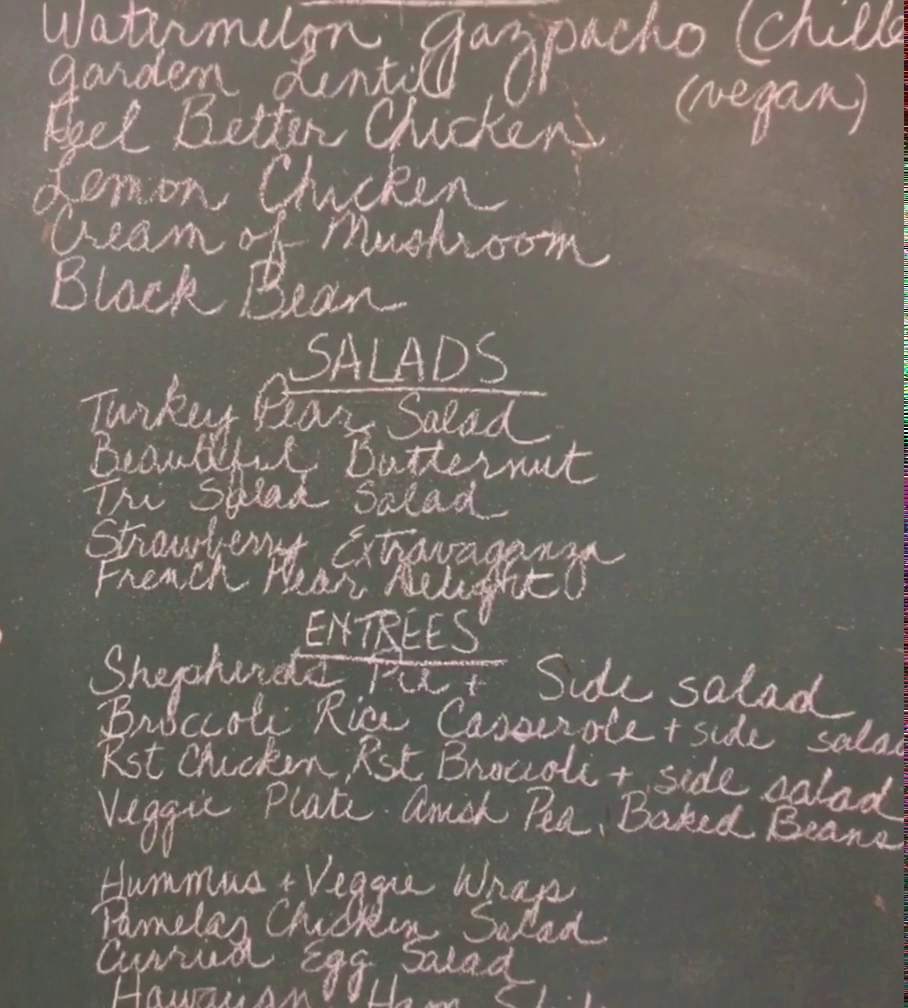 Watermelon Gazpacho (chille
Garden Lentil (vegan)
Feel Better Chicken
Lemon Chicken
Cream of Mushroom
Black Bean
SALADS
Turkey Pear Salad
Beautiful Butternut
Tri Salad Salad
Strawberry Extravaganza
French Pear Delight
ENTRÉES
Shepherds Pie + Side salad
Broccoli Rice Casserole + side salad
Rst Chicken, Rst Broccoli + side salad
Veggie Plate. Amsh Pea, Baked Beans
Hummus + Veggie Wrap
Pamelas Chicken Salad
Curried Egg Salad
Hawaiian Ham